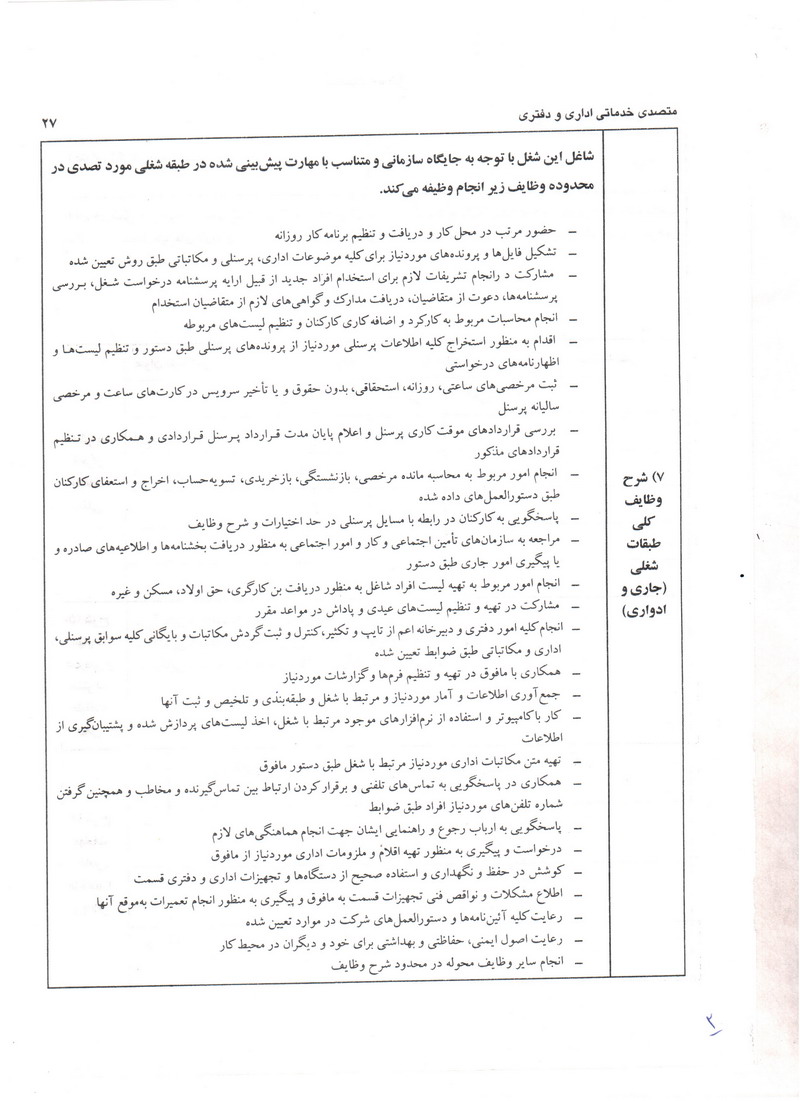 متصدی خدماتی اداری و دفتری
۲۷
شاغل این شغل با توجه به جایگاه سازمانی و متناسب با مهارت پیش‌بینی شده در طبقه شغلی مورد تصدی در
محدوده وظایف زیر انجام وظیفه می‌کند.
– حضور مرتب در محل کار و دریافت و تنظیم برنامه کار روزانه
– تشکیل فایل‌ها و پرونده‌های موردنیاز برای کلیه موضوعات اداری، پرسنلی و مکاتباتی طبق روش تعیین شده
– مشارکت د رانجام تشریفات لازم برای استخدام افراد جدید از قبیل ارایه پرسشنامه درخواست شغل، بررسی
پرسشنامه‌ها، دعوت از متقاضیان، دریافت مدارك و گواهی‌های لازم از متقاضیان استخدام
– انجام محاسبات مربوط به کارکرد و اضافه کاری کارکنان و تنظیم لیست‌های مربوطه
– اقدام به منظور استخراج کلیه اطلاعات پرسنلی موردنیاز از پرونده‌های پرسنلی طبق دستور و تنظیم لیست‌ها و
اظهارنامه‌های درخواستی
– ثبت مرخصی‌های ساعتی، روزانه، استحقاقی، بدون حقوق و یا تأخیر سرویس در کارت‌های ساعت و مرخصی
سالیانه پرسنل
– بررسی قراردادهای موقت کاری پرسنل و اعلام پایان مدت قرارداد پرسنل قراردادی و همکاری در تنظیم
قراردادهای مذکور
– انجام امور مربوط به محاسبه مانده مرخصی، بازنشستگی، بازخریدی، تسویه‌حساب، اخراج و استعفای کارکنان
طبق دستورالعمل‌های داده شده
– پاسخگویی به کارکنان در رابطه با مسایل پرسنلی در حد اختیارات و شرح وظایف
– مراجعه به سازمان‌های تأمین اجتماعی و کار و امور اجتماعی به منظور دریافت بخشنامه‌ها و اطلاعیه‌های صادره و
یا پیگیری امور جاری طبق دستور
– انجام امور مربوط به تهیه لیست افراد شاغل به منظور دریافت بن کارگری، حق اولاد، مسکن و غیره
– مشارکت در تهیه و تنظیم لیست‌های عیدی و پاداش در مواعد مقرر
– انجام کلیه امور دفتری و دبیرخانه اعم از تایپ و تکثیر، کنترل و ثبت گردش مکاتبات و بایگانی کلیه سوابق پرسنلی،
اداری و مکاتباتی طبق ضوابط تعیین شده
– همکاری با مافوق در تهیه و تنظیم فرم‌ها و گزارشات موردنیاز
– جمع‌آوری اطلاعات و آمار موردنیاز و مرتبط با شغل و طبقه‌بندی و تلخیص و ثبت آنها
– کار با کامپیوتر و استفاده از نرم‌افزارهای موجود مرتبط با شغل، اخذ لیست‌های پردازش شده و پشتیبان‌گیری از
اطلاعات
– تهیه متن مکاتبات اداری موردنیاز مرتبط با شغل طبق دستور مافوق
– همکاری در پاسخگویی به تماس‌های تلفنی و برقرار کردن ارتباط بین تماس‌گیرنده و مخاطب و همچنین گرفتن
شماره تلفن‌های موردنیاز افراد طبق ضوابط
– پاسخگویی به ارباب رجوع و راهنمایی ایشان جهت انجام هماهنگی‌های لازم
– درخواست و پیگیری به منظور تهیه اقلام و ملزومات اداری موردنیاز از مافوق
– کوشش در حفظ و نگهداری و استفاده صحیح از دستگاه‌ها و تجهیزات اداری و دفتری قسمت
– اطلاع مشکلات و نواقص فنی تجهیزات قسمت به مافوق و پیگیری به منظور انجام تعمیرات به‌موقع آنها
– رعایت کلیه آئین‌نامه‌ها و دستورالعمل‌های شرکت در موارد تعیین شده
– رعایت اصول ایمنی، حفاظتی و بهداشتی برای خود و دیگران در محیط کار
– انجام سایر وظایف محوله در محدود شرح وظایف
۷) شرح
وظایف
کلی
طبقات
شغلی
(جاری و
ادواری)
۳